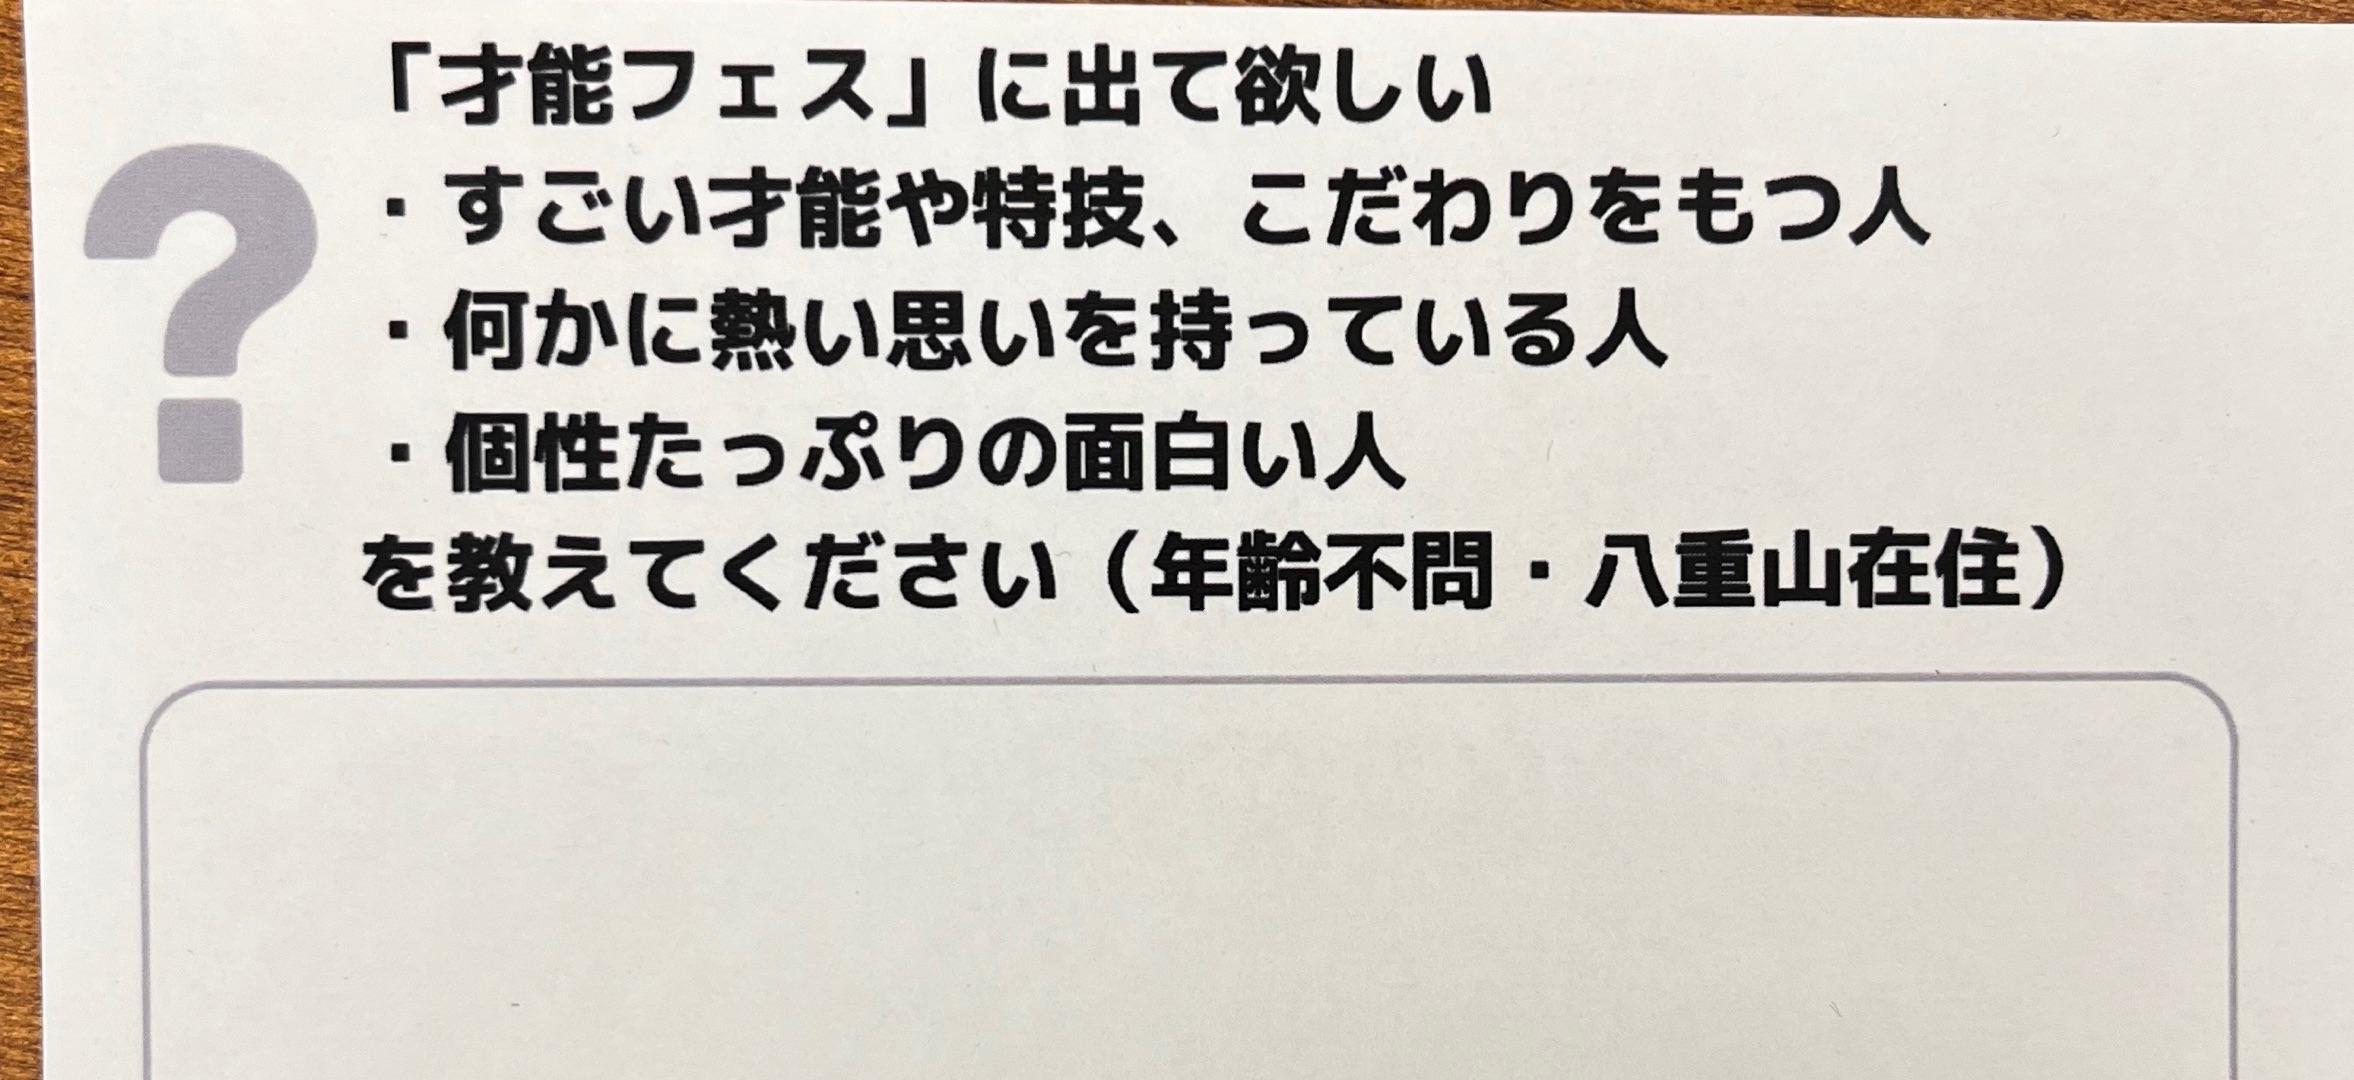 「才能フェス」に出て欲しい
・すごい才能や特技、こだわりをもつ人
・何かに熱い思いを持っている人
・個性たっぷりの面白い人
を教えてください（年齢不問・八重山在住）
?